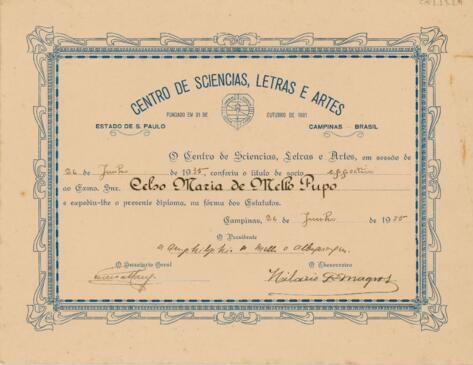 CENTRO DE SCIENCIAS, LETRAS E ARTES
FUNDADO EM 31 DE OUTUBRO DE 1901
ESTADO DE S. PAULO CAMPINAS BRASIL
O Centro de Sciencias, Letras e Artes, em sessão de
26 de Junho de 1935, conferiu o titulo de socio
ao Exmo. Snr. Celso Maria de Mello Pupo
e expediu-lhe o presente diploma, na fórma dos Estatutos.
Campinas, 26 de Junho de 1935
O Presidente
O Secretario Geral O Thesoureiro
Hilario Magro